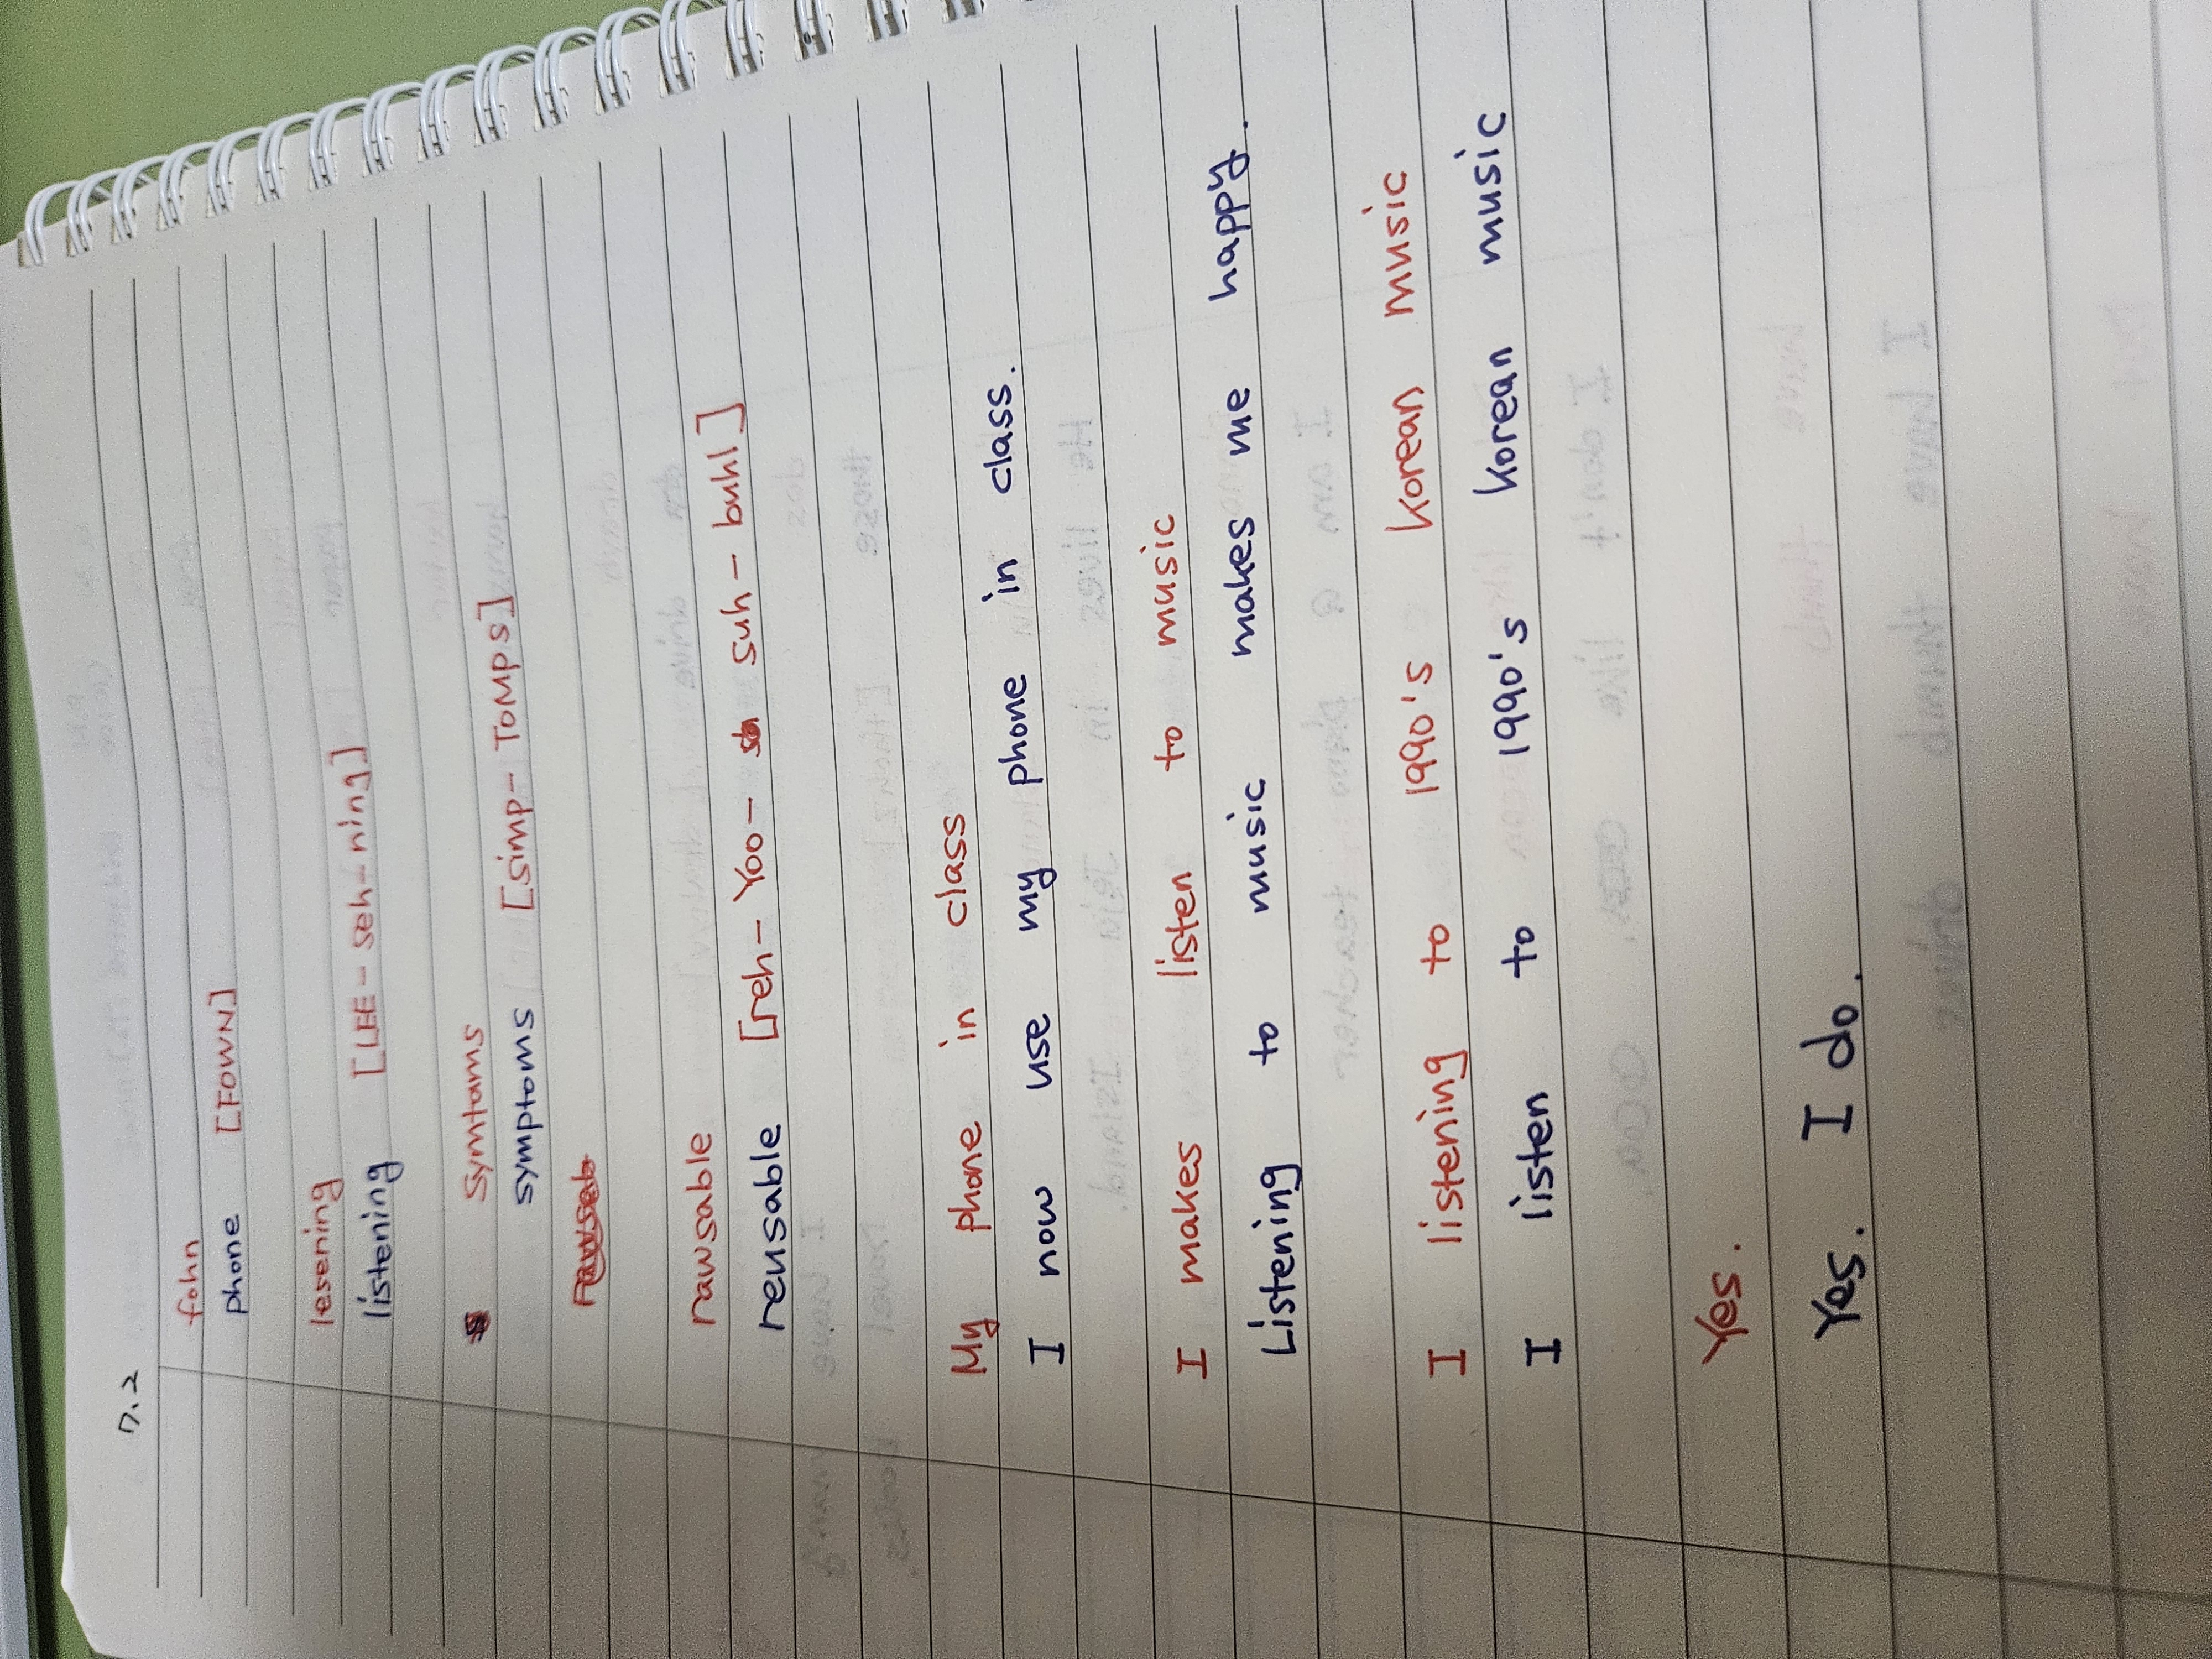 7.2
fohn
phone [FOWN]
lesening
listening [LEE- seh-ning]
Symtoms
symptoms [simp- TOMPS]
rawsable
reusable [reh- Yoo- suh- buhl]
My phone in class
I now use my phone in class.
I makes listen to music
Listening to music makes me happy.
I listening to 1990's korean music
I listen to 1990's korean music
Yes.
Yes. I do.